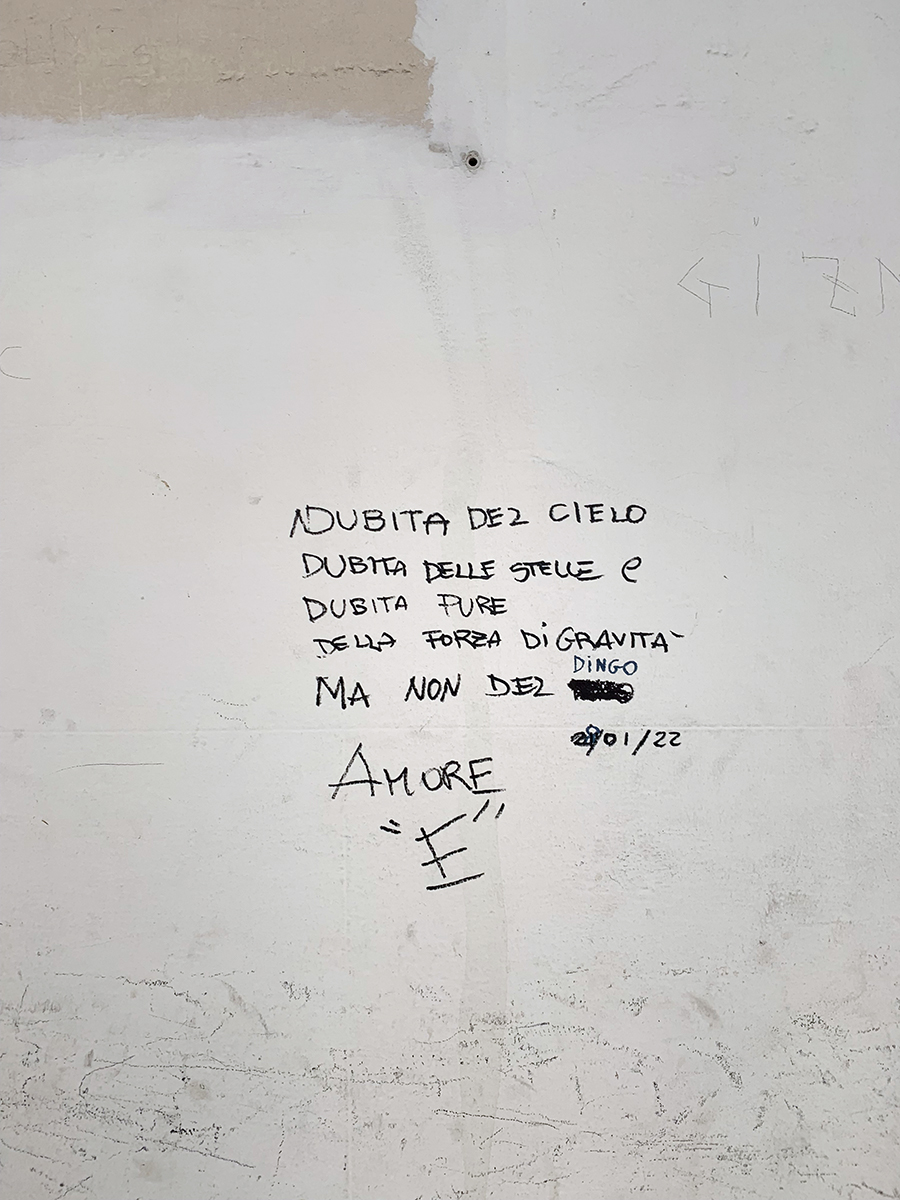 GIZN
DUBITA DEL CIELO
DUBITA DELLE STELLE e
DUBITA PURE
DELLA FORZA Di GRAVITA`
DiNGO
MA NON DEL
01/22
AMORE
"E"